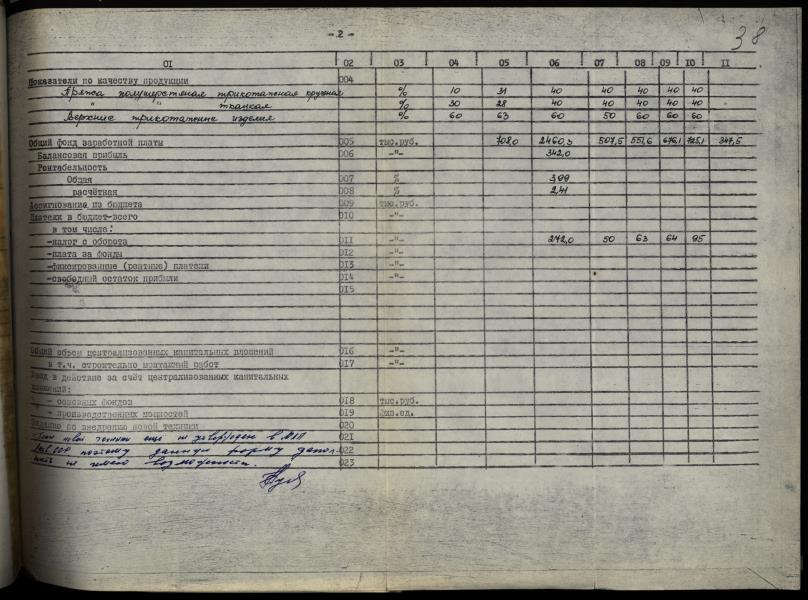 - 2 -
38
01 02 03 04 05 06 07 08 09 10 11
Показатели по качеству продукции 004
Пряжа полушерстяная трикотажная кружная % 10 31 40 40 40 40 40
" " ткацкая % 30 28 40 40 40 40 40
Верхние трикотажные изделия % 60 63 60 50 60 60 60
Общий фонд заработной платы 005 тыс.руб. 708,0 2460,3 507,5 551,6 676,1 725,1 347,5
Балансовая прибыль 006 -"- 342,0
Рентабельность
Общая 007 % 3,99
расчётная 008 % 2,41
Ассигнование из бюджета 009 тыс.руб.
Платежи в бюджет-всего 010 -"-
в том числе:
-налог с оборота 011 -"- 272,0 50 63 64 95
-плата за фонды 012 -"-
-фиксированные (рентные) платежи 013 -"-
-свободный остаток прибыли 014 -"-
015
Общий объем централизованных капитальных вложений 016 -"-
в т.ч. строительно монтажный работ 017 -"-
Ввод в действие за счёт централизованных капитальных
вложений:
- основных фондов 018 тыс.руб.
- производственных мощностей 019
Задание по внедрению новой техники 020
План новой техники еще не утвержден в МЛП 021
поэтому данную форму запол- 022
нить не имею возможности. 023